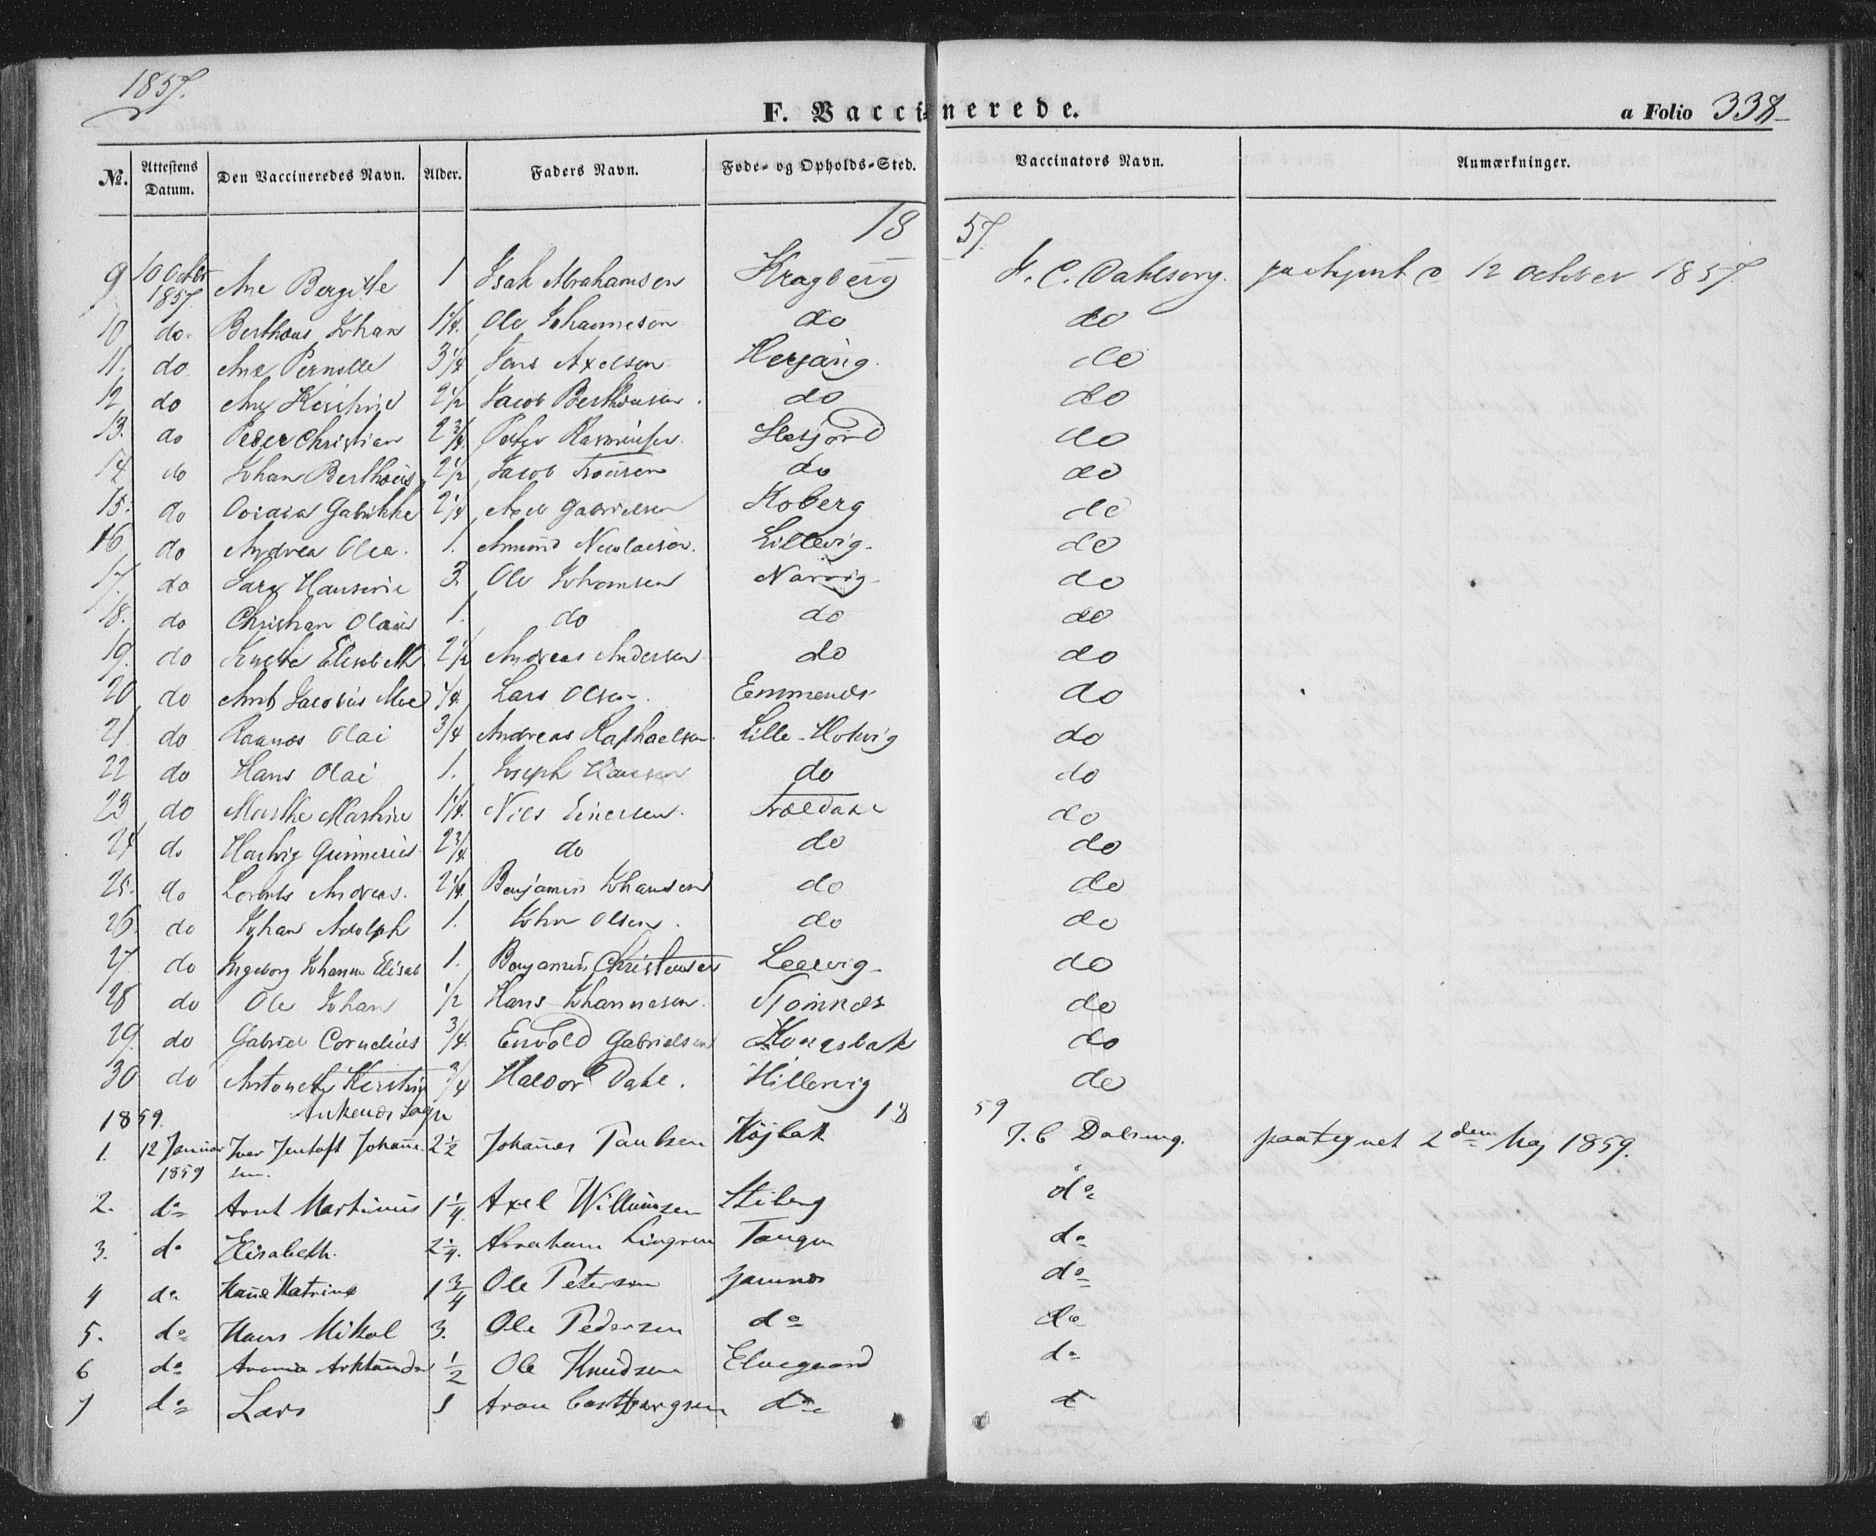 1857.
F. Vaccinerede.
a Folio 338
No. Attestens Datum. Den Vaccineredes Navn. Alder. Faders Navn. Føde- og Opholds-Sted. Vaccinators Navn. Anmærkninger.
1857.
9 10 October 1857. Ane Bergithe 1 Isak Abrahamsen Kragberg J. C. Dahlseng. paategnet 12 October 1857.
10 do. Berthous Johan 1 1/4. Ole Johannesen do do
11. do Ane Pernille 3 1/4 Axelsen Herjang. do
12 do Ane 2 1/2 Jacob Berthousen. do do
13. do Peder Christian 2 3/4. Peder Rasmussen do
14 do Johan Berthous 2 1/2 Jacob do do
15. do Gabrikke 2 1/4 Axel Gabrielsen Koberg do
16 do Andrea Olea. 1. Amund Nicolaisen. Lillevig. do
17. do Hanserie 3. Ole Johansen Narvig do
18. do Christian Olaus 1. do do do
19. do Elisabeth 2 1/2 Andreas Andersen do do
20 do Jacobus 1/4. Lars Olsen. Emmenes do
21 do Olai 3/4 Andreas Raphaelsen. Lille-Hokvig do
22 do Hans Olai 1. Joseph Hansen do do
23 do Marthe Marthine 1 1/4. Nils Einersen. Træedal do
24 do Hartvig Gunnerius 2 3/4. do do do
25. do Lorents Andreas. 2 1/4. Benjamin Johansen do do
26. do Johan Adolph 1. John Olsen. do do
27. do Ingeborg Johanne Elisab 1. Benjamin Christensen Leervig. do
28 do Ole Johan 1/2 Hans Johannesen. do
29. do Gabriel Cornelius 3/4. Envold Gabrielsen Kongsbak do
30 do Kirstine 3/4 Halvor Dahl. Hillervig do
1859. Ankenes Sogn 1859
1. 12 Januar 1859 Iver Jentoft Johannesen. 2 1/2 Johannes Paulsen Højbak J. C Dalseng. paategnet 2den Maj 1859.
2. do Arnt Martinus 1 1/4. Axel Willumsen Stiberg do
3. do Elisabeth. 2 1/4. Abraham Tangen do
4 do Hanna Katrine 1 3/4 Ole Petersen do
5. do Hans Mikal 3. Ole Pedersen do do
6 do 1/2 Ole Knudsen Elvegaard do
7 do Lars 1 Aron do d